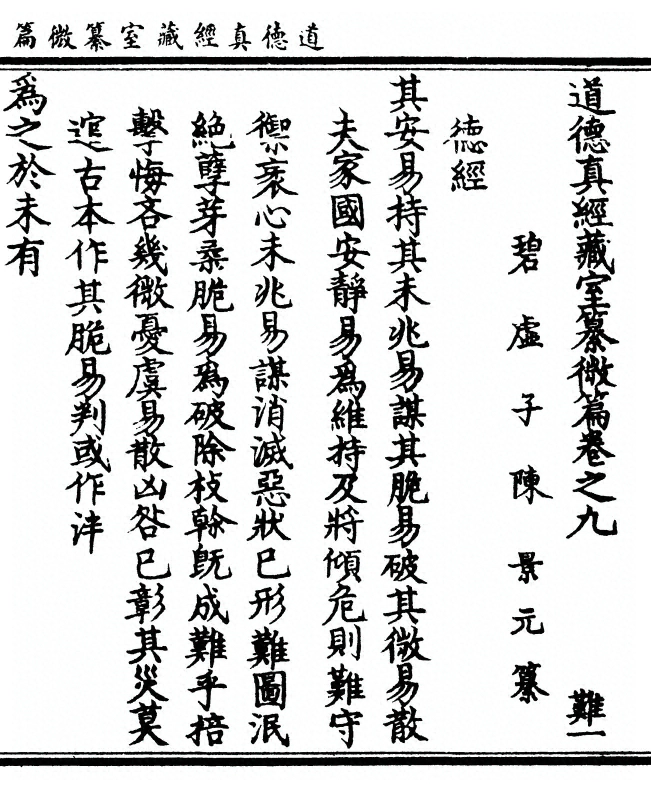 道德真經藏室纂微篇
道德真經藏室纂微篇卷之九 難一
碧虛子陳景元纂
德經
其安易持其未兆易謀其脆易破其微易散
夫家國安靜易爲維持及將傾危則難守
禦衺心未兆易謀消滅惡狀已形難圖泯
絶孽芽柔脆易爲破除枝榦旣成難乎掊
擊悔吝幾微憂虞易散凶咎已彰其災莫
逭古本作其脆易判或作泮
爲之於未有